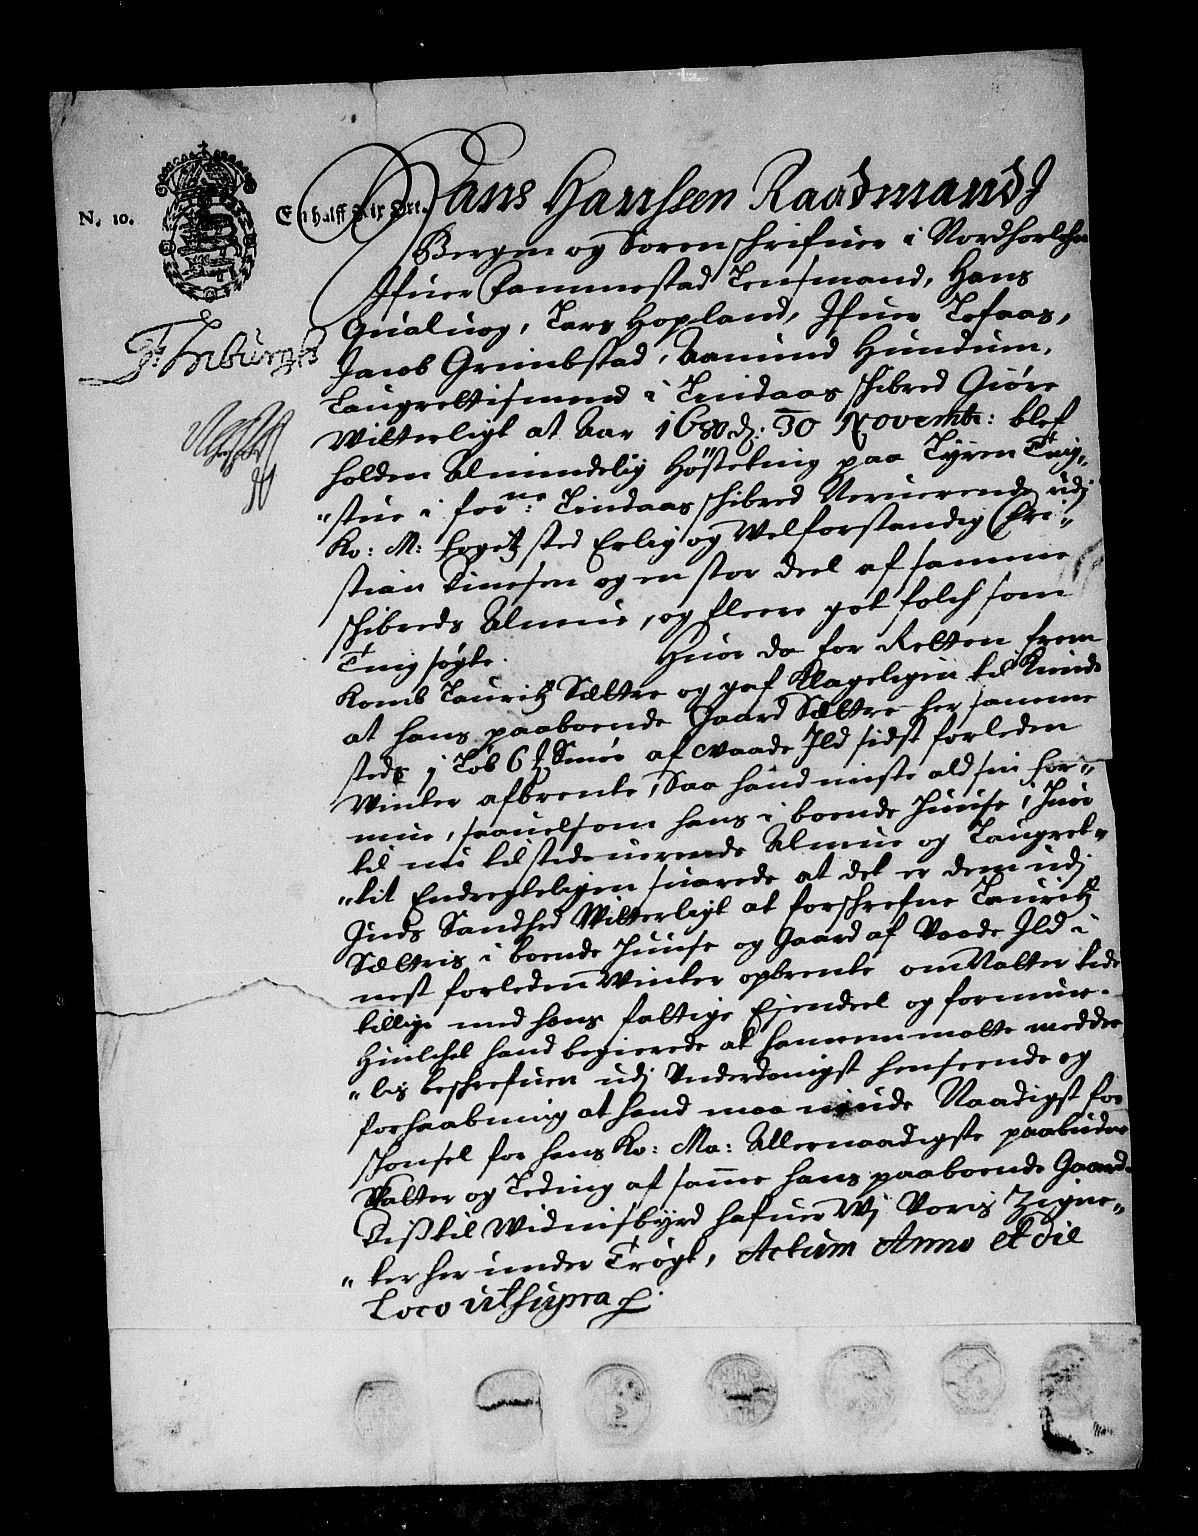 N. 10.
En halff Rix Ort.
Hans Hanssen Raadmand J
Bergen og Soren schrifuer i Nordhorlehn
Ifuer Rammestad Lensmand, Hans
Qualuog, Lars Hopland, Ifuer Tofaas,
Jacob Grimbstad, Aamund Hundum,
Laugrettismend i Lindaas schibred Giøre
Witterligt at Aar 1680 d: 30 Novembr: blef
holden Almindelig Høsteting paa Tyren Ting,,
,,stue i forne: Lindaas schibred Neruerende udj
Ko: M: fogetz sted Erlig og Welforstandig Cri,,
stian Tinesen og en stor deel af samme
schibreds Almue, og fleere got folch som
Ting søgte. Huor da for Retten frem
Komb Lauritz Sæltre og gaf Klageligen til Kiende
at hans paaboende Gaard Sæltre her samme
steds j Løb 6 Smør af waade Ild sidst forleden
Winter afbrente, Saa hand miste ald sin for,,
mue, saauelsom hans i boende Huuse, Huor
til nu tilstede uerende Almue og Laugret,,
,,tit Endregteligen suarede at det er dem udj
Guds Sandhed Witterligt at forschrefne Lauritz
Sæltris i boende Huuse og Gaard af Vaade Ild i
nest forleden Winter opbrente om Natter tide
tillige med hans fattige Ejendeel og formue.
Huilchet hand begierede at hannem motte medde
,,lis beschrefuen udj Vnderdanigst henseende og
forhaabning at hand maa niude Naadigst for
schonsel for hans Ko: Ma: Allernaadigste paabudne
Skatter og Leding af samme hans paaboende Gaard.
Dis til Widnisbyrd hafuer Wj Voris Zigne,,
,,ter her under Trøgt, Actum Anno et die
Loco ut supra